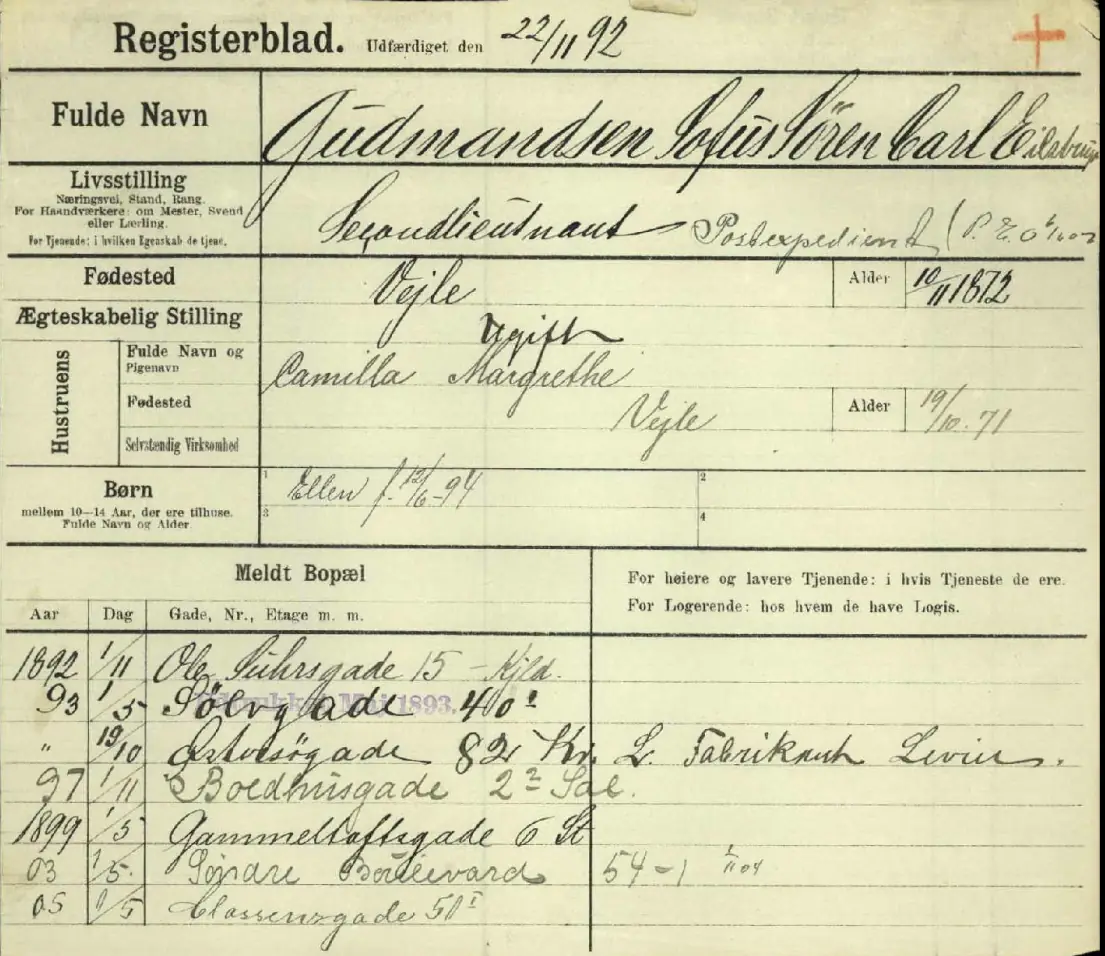 Registerblad. Udfærdiget den 22/11 92
Fulde Navn Gudmandsen Sofus Sören Carl
Livsstilling
Næringsvei, Stand, Rang.
For Haandværkere: om Mester, Svend
eller Lærling.
For Tjenende: i hvilken Egenskab de tjene.
Secondlieutnant Postexpedient
Fødested Vejle Alder 10/11 1872
Ægteskabelig Stilling Ugift
Hustruens
Fulde Navn og
Pigenavn
Camilla Margrethe
Fødested Vejle Alder 19/10. 71
Selvstændig Virksomhed
Børn
mellem 10—14 Aar, der ere tilhuse.
Fulde Navn og Alder.
1 Ellen f. 12/6-94 2
3 4
Meldt Bopæl
For høiere og lavere Tjenende: i hvis Tjeneste de ere.
For Logerende: hos hvem de have Logis.
Aar Dag Gade, Nr., Etage m. m.
1892 1/11 Ole Suhrsgade 15 - Kjld.
93 1/5 Sölvgade 40 1
Maj 1893.
" 19/10 Østersøgade 82 Kv. L. Fabrikant Levin.
97 1/11 2 2 Sal.
1899 1/5 Gammeltoftsgade 6 St
03 1/5. Søndre Boulevard 54-1 1/11 04
05 1/5 Classensgade 50 I